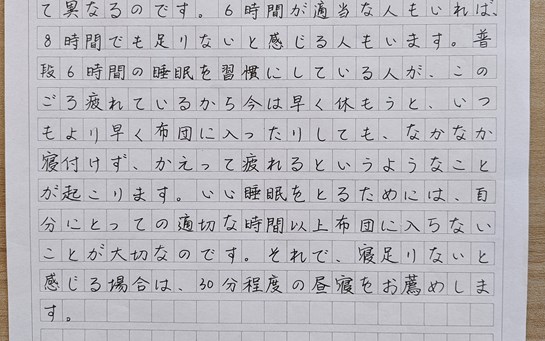 て異なるのです。6時間が適当な人もいれば、
8時間でも足りないと感じる人もいます。普
段6時間の睡眠を習慣にしている人が、この
ごろ疲れているから今は早く休もうと、いつ
もより早く布団に入ったりしても、なかなか
寝付けず、かえって疲れるというようなこと
が起こります。いい睡眠をとるためには、自
分にとっての適切な時間以上布団に入らない
ことが大切なのです。それで、寝足りないと
感じる場合は、30分程度の昼寝をお薦めしま
す。